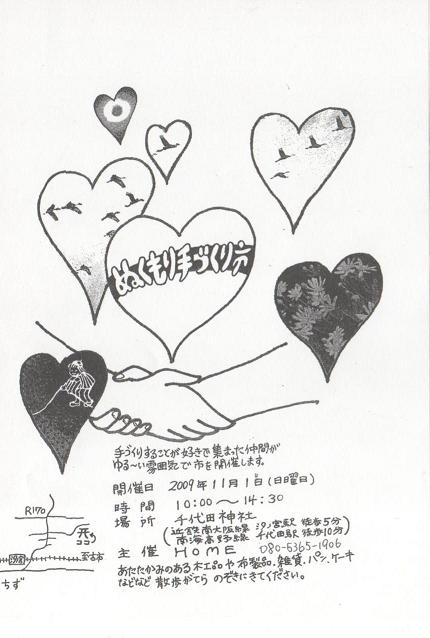 ぬくもり手づくり市
手づくりすることが好きで集まった仲間が
ゆる〜い雰囲気で市を開催します。
開催日 2009年11月1日(日曜日)
時間 10:00〜14:30
場所 千代田神社
(近鉄南大阪線 汐ノ宮駅 徒歩5分
南海高野線 千代田駅 徒歩10分)
主催 HOME 080-5365-1906
あたたかみのある木工品や布製品.雑貨.パン.ケーキ
などなど 散歩がてら のぞきにきてください。
R170
ココ
至古市
ちず